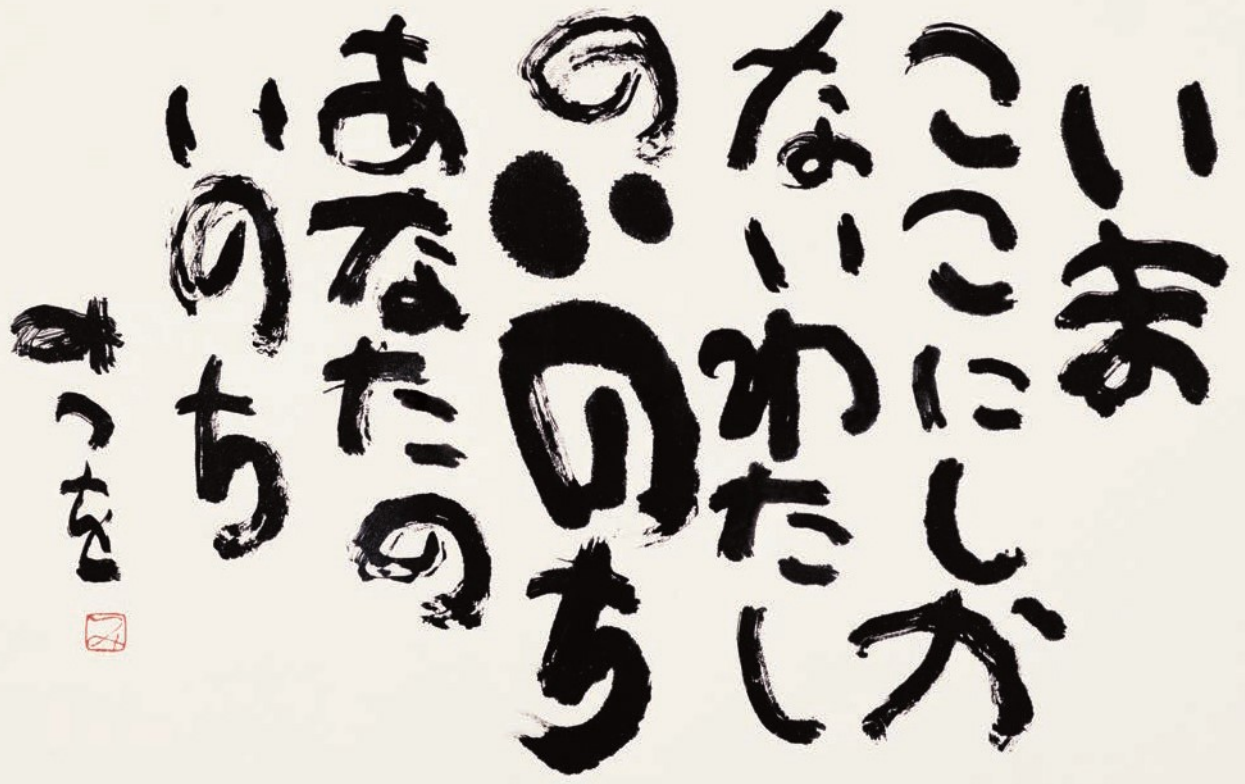 いま
ここにしか
ないわたし
のいのち
あなたの
いのち
みつを
み